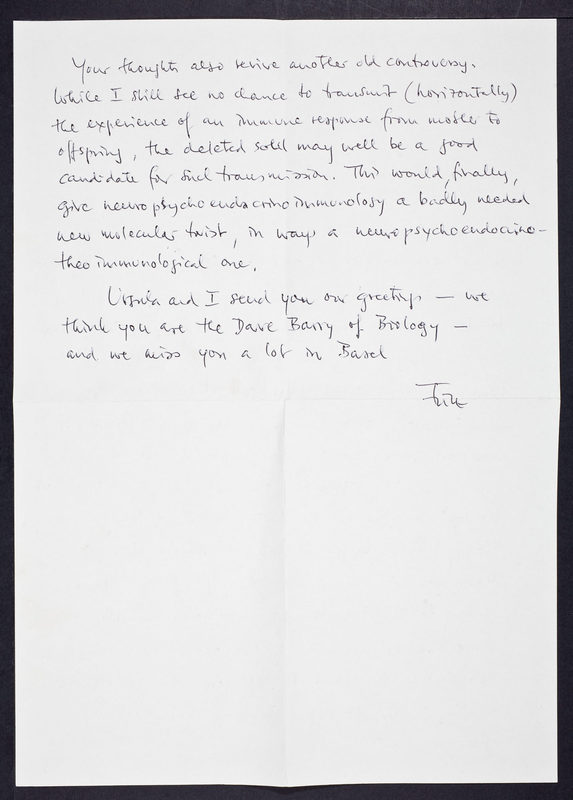 Your thoughts also revive another old controversy.
While I still see no chance to transmit (horizontally)
the experience of an immune response from mother to
offspring, the deleted soul may well be a good
candidate for such transmission. This would, finally,
give neuropsychoendocrinoimmunology a badly needed
new molecular twist, in ways a neuropsychoendocrino-
theoimmunological one.
Ursula and I send you our greetings — we
think you are the Dave Barry of Biology —
and we miss you a lot in Basel
Fritz